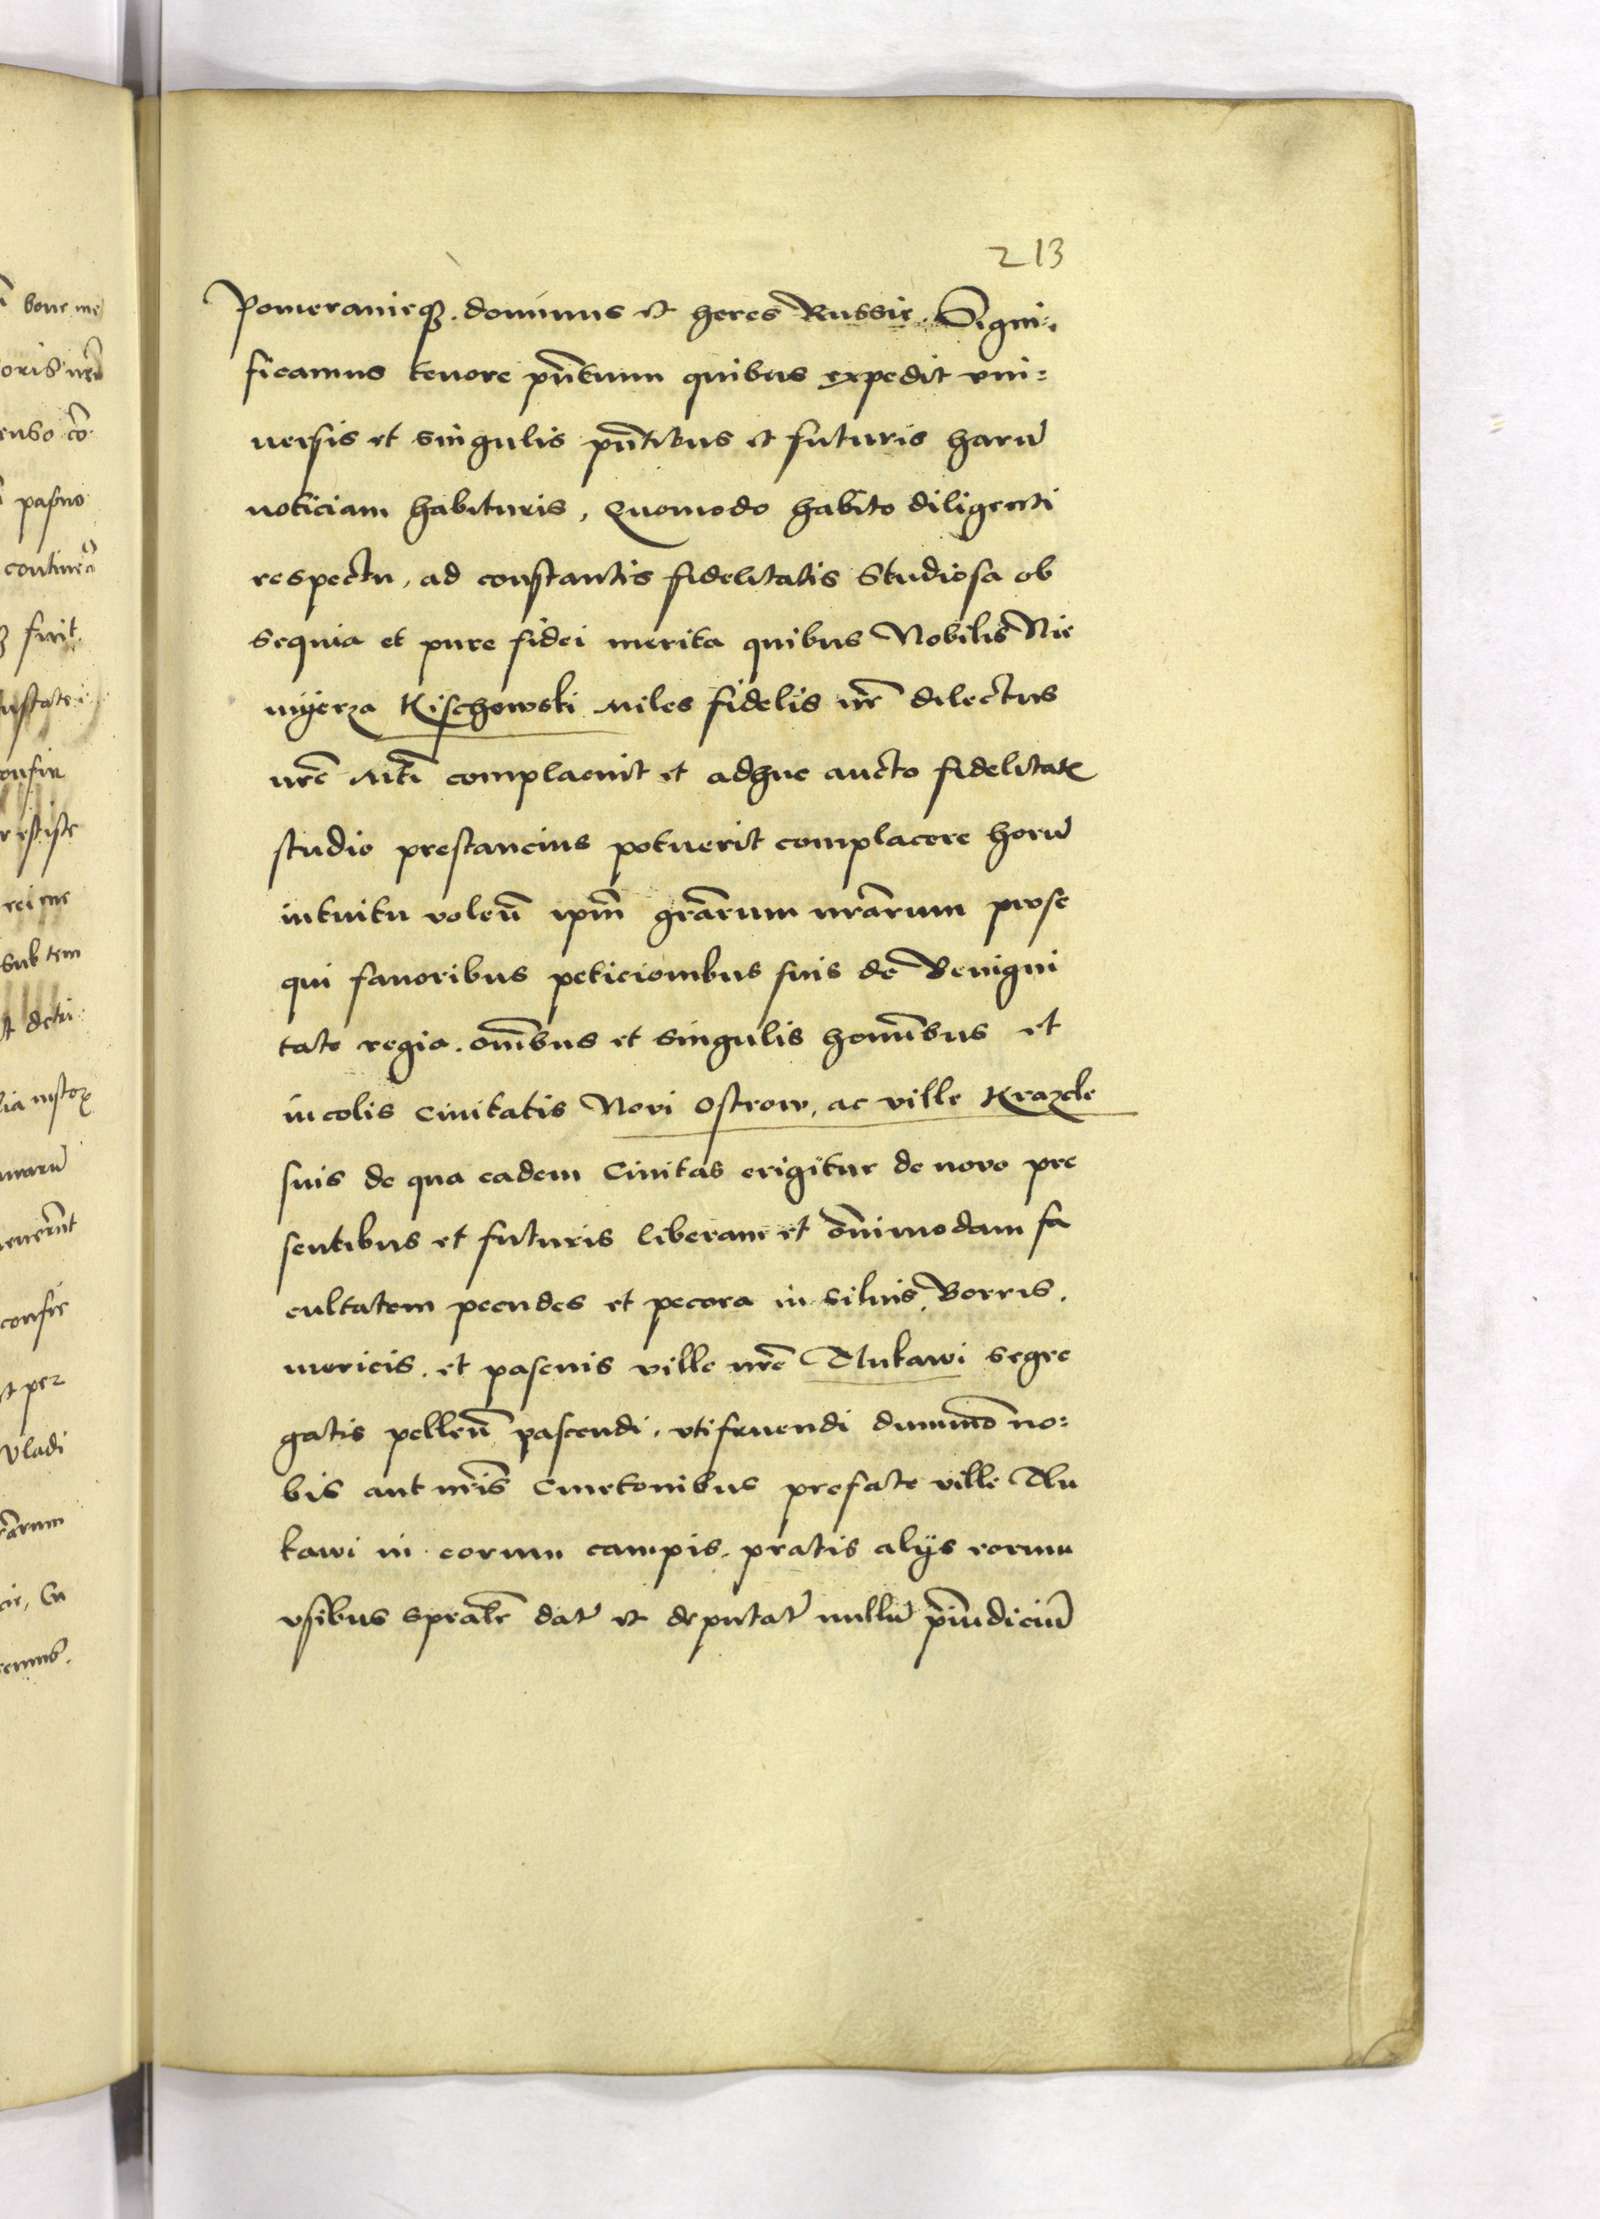 213
Pomeranieqȝ. dominus et heres Russie. Signi.
ficamus tenore pn̄tium quibus expedit vni=
uersis et singulis pn̄tibus et futuris harū
noticiam habituris, Quomodo habito diligenti
respectu, ad constantis fidelitatis Studiosa ob
sequia et pure fidei merita quibus Nobilis Nie
myerza Kischowski miles fidelis nr̄ dilectus
nrē Mti complacuit et adhuc aucto fidelitatꝭ
studio prestancius potuerit complacere horū
intuitu volen̄ ipm̄ gr̄arum nr̄arum prose
qui fauoribus peticionibus suis de Benigni
tate regia. om̄ibus et singulis homībus et
incolis Ciuitatis Novi Ostrow, ac ville Krazcle
suis de qua eadem Ciuitas erigitur de novo pre
sentibus et futuris liberam et ōnimodam fa
cultatem pecudes et pecora in siluis, Borris,
mericis. et pascuis ville nrē Dlukawi segre
gatis pellen̄ pascendi. vtifruendi dummō no=
bis aut nrīs Cmetonibus prefate ville Dlu
kawi in eorum campis. pratis alijs eorum
vsibus spealr̄ datꝭ et deputatꝭ nullū p̄iudiciū
bone me
pasno
continē
furit
confir
rei me
sub tem
confir
et per
vladi